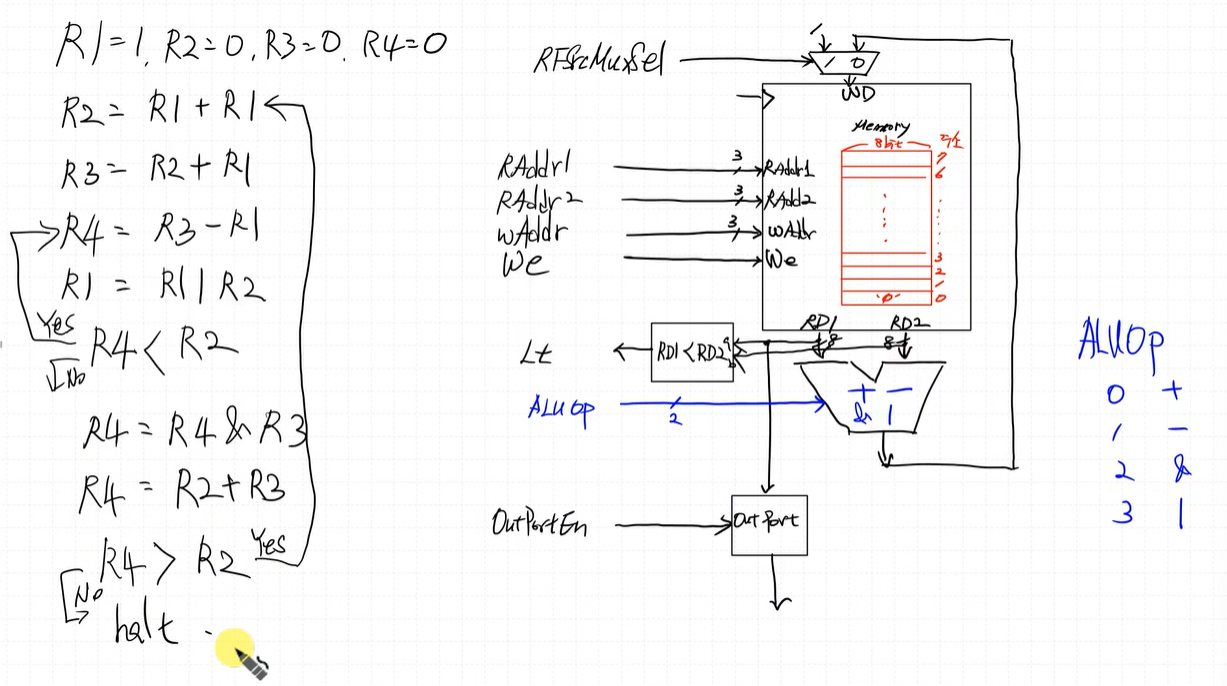 R1=1, R2=0, R3=0, R4=0
R2 = R1 + R1
R3 = R2 + R1
R4 = R3 - R1
R1 = R1 | R2
Yes
R4 < R2
No
R4 = R4 & R3
R4 = R2 + R3
R4 > R2 Yes
No
halt .
RFSrcMuxSel
1 1 0
WD
Memory
8bit
7
6
3
2
1
"0" 0
RAddr1 3 RAddr1
RAddr2 3 RAdd2
wAddr 3 wAddr
We We
RD1 RD2
8 8
Lt RD1 < RD2
a
b
ALUOp 2
+ -
& |
OutPortEn OutPort
ALUOp
0 +
1 -
2 &
3 |